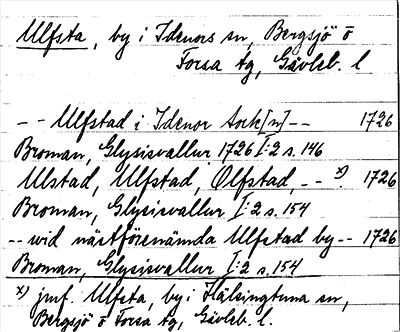 Ulfsta, by i Idenors sn, Bergsjö o
Forsa tg, Gävleb. l
-- Ulfstad i Idenor Sock[n] -- 1726
Broman, Glysisvallur 1726 I:2 s. 146
Ulstad, Ulfstad, Olfstad -- x). 1726
Broman, Glysisvallur I:2 s. 154
-- wid nästförenämda Ulfstad by -- 1726
Broman, Glysisvallur I:2 s. 154
x) jmf. Ulfsta, by i Hälsingtuna sn,
Bergsjö o Forsa tg, Gävleb. l.